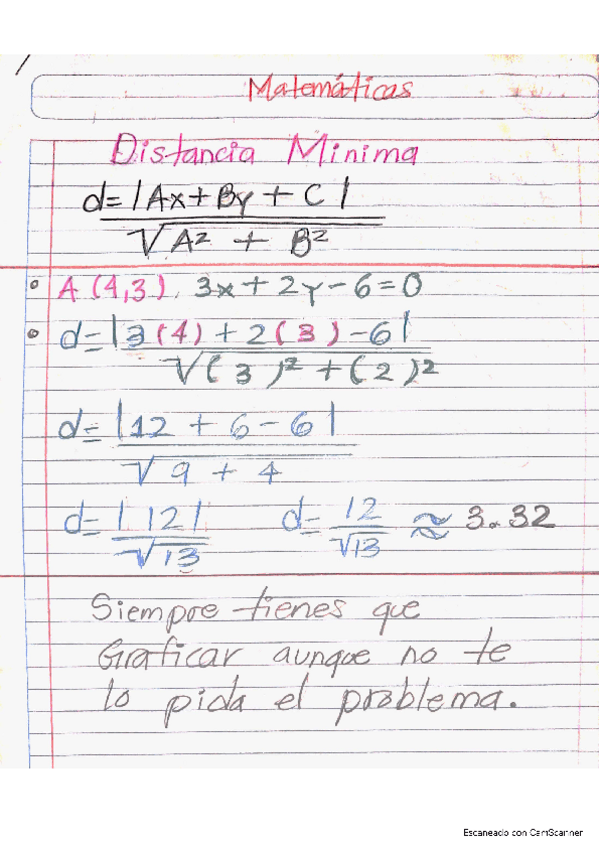 Matemáticas
Distancia Minima
d=|Ax+By+C|
√A² + B²
A (4,3), 3x+2y-6=0
d=|3(4)+2(3)-6|
√(3)²+(2)²
d=|12+6-6|
√9+4
d=|12| d=12 ≈ 3.32
√13 √13
Siempre tienes que
Graficar aunque no te
lo pida el problema.
Escaneado con CamScanner